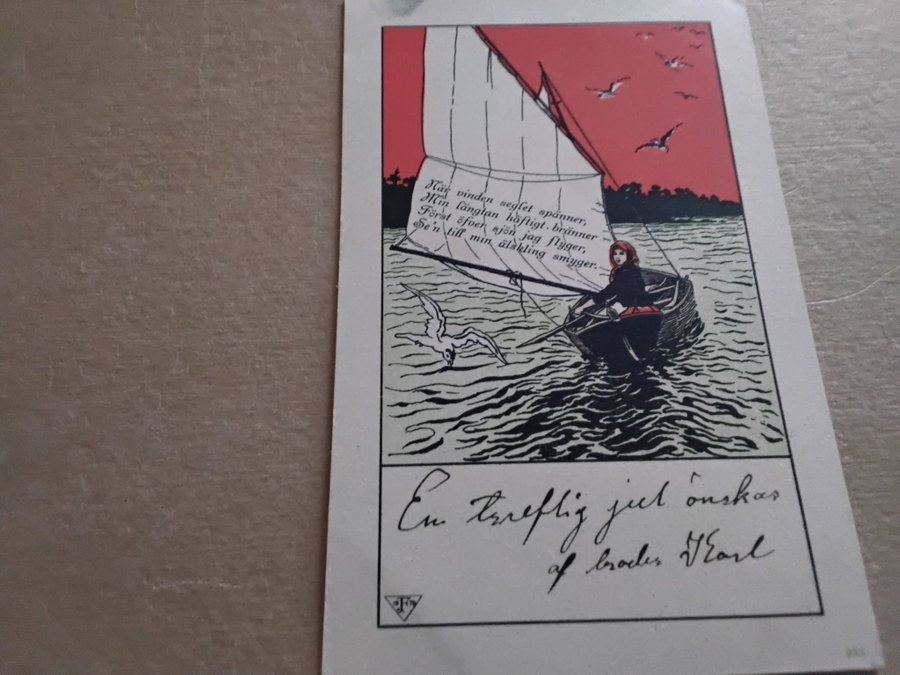 När vinden seglet spänner,
Min längtan häftigt bränner
Först öfver sjön jag flyger,
Se'n till min älskling smyger.
En treflig jul önskas
af broder Karl